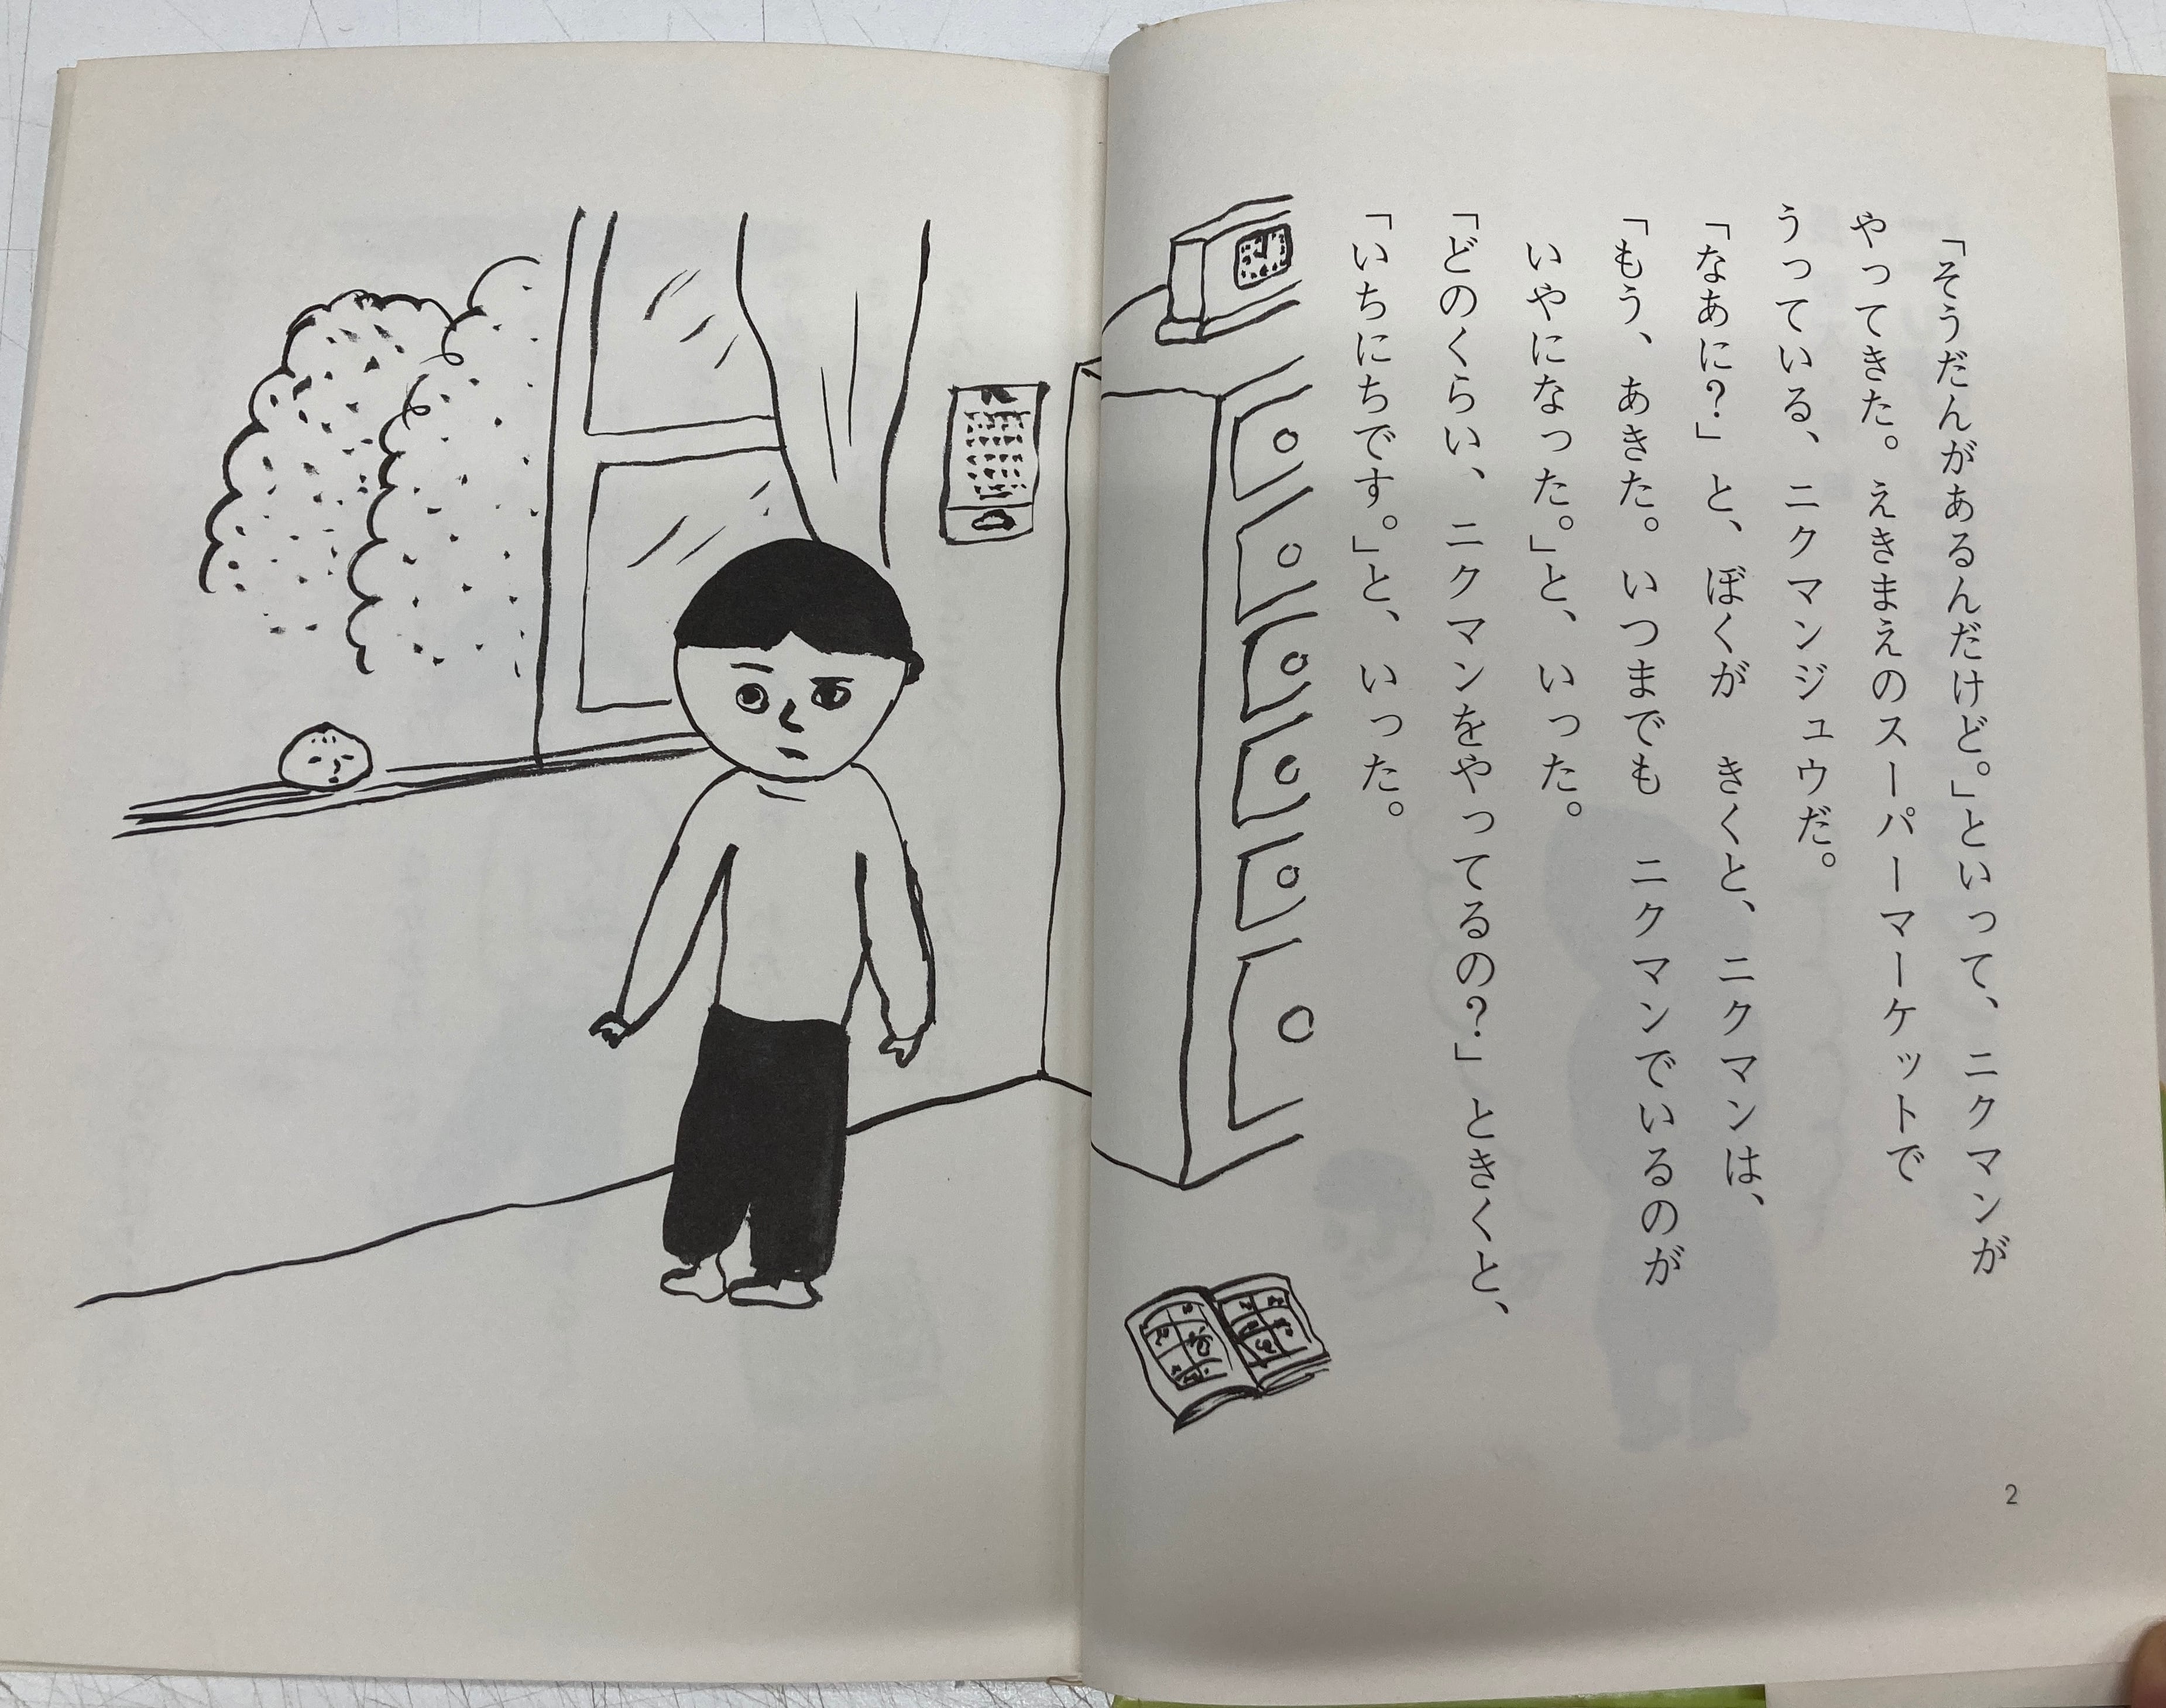 「そうだんがあるんだけど。」といって、ニクマンが
やってきた。えきまえのスーパーマーケットで
うっている、ニクマンジュウだ。
「なあに?」と、ぼくが　きくと、ニクマンは、
「もう、あきた。いつまでも　ニクマンでいるのが
いやになった。」と、いった。
「どのくらい、ニクマンをやってるの?」ときくと、
「いちにちです。」と、いった。
2